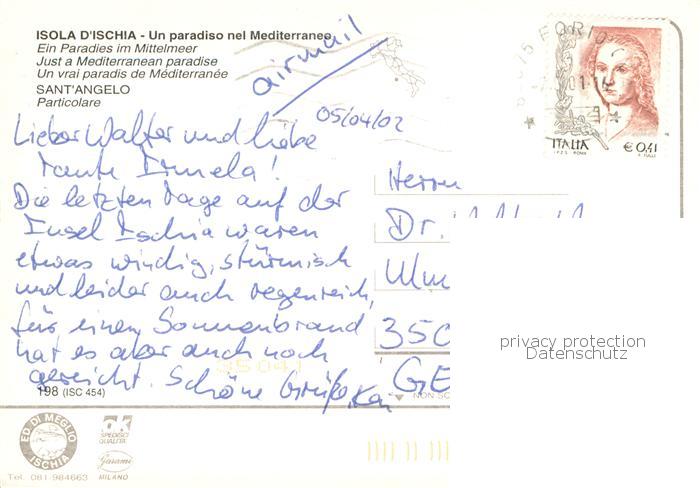 ISOLA D'ISCHIA - Un paradiso nel Mediterraneo
Ein Paradies im Mittelmeer
Just a Mediterranean paradise
Un vrai paradis de Méditerranée
SANT'ANGELO
Particolare
airmail
05/04/02
Lieber Walter und liebe
Tante Irmela!
Die letzten Tage auf der
Insel Ischia waren
etwas windig, stürmisch
und leider auch regenreich,
für einen Sonnenbrand
hat es aber auch noch
gereicht. Schöne Grüße,
198 (ISC 454)
35041
FORIO
ITALIA
€ 0,41
I.P.Z.S. ROMA
Herrn
Dr.
Ulm
350
GE
NON SC
privacy protection
Datenschutz
ED. DI MEGLIO
ISCHIA
Tel. 081-984663
SPEDISCI
QUALITÀ
Garami
MILANO